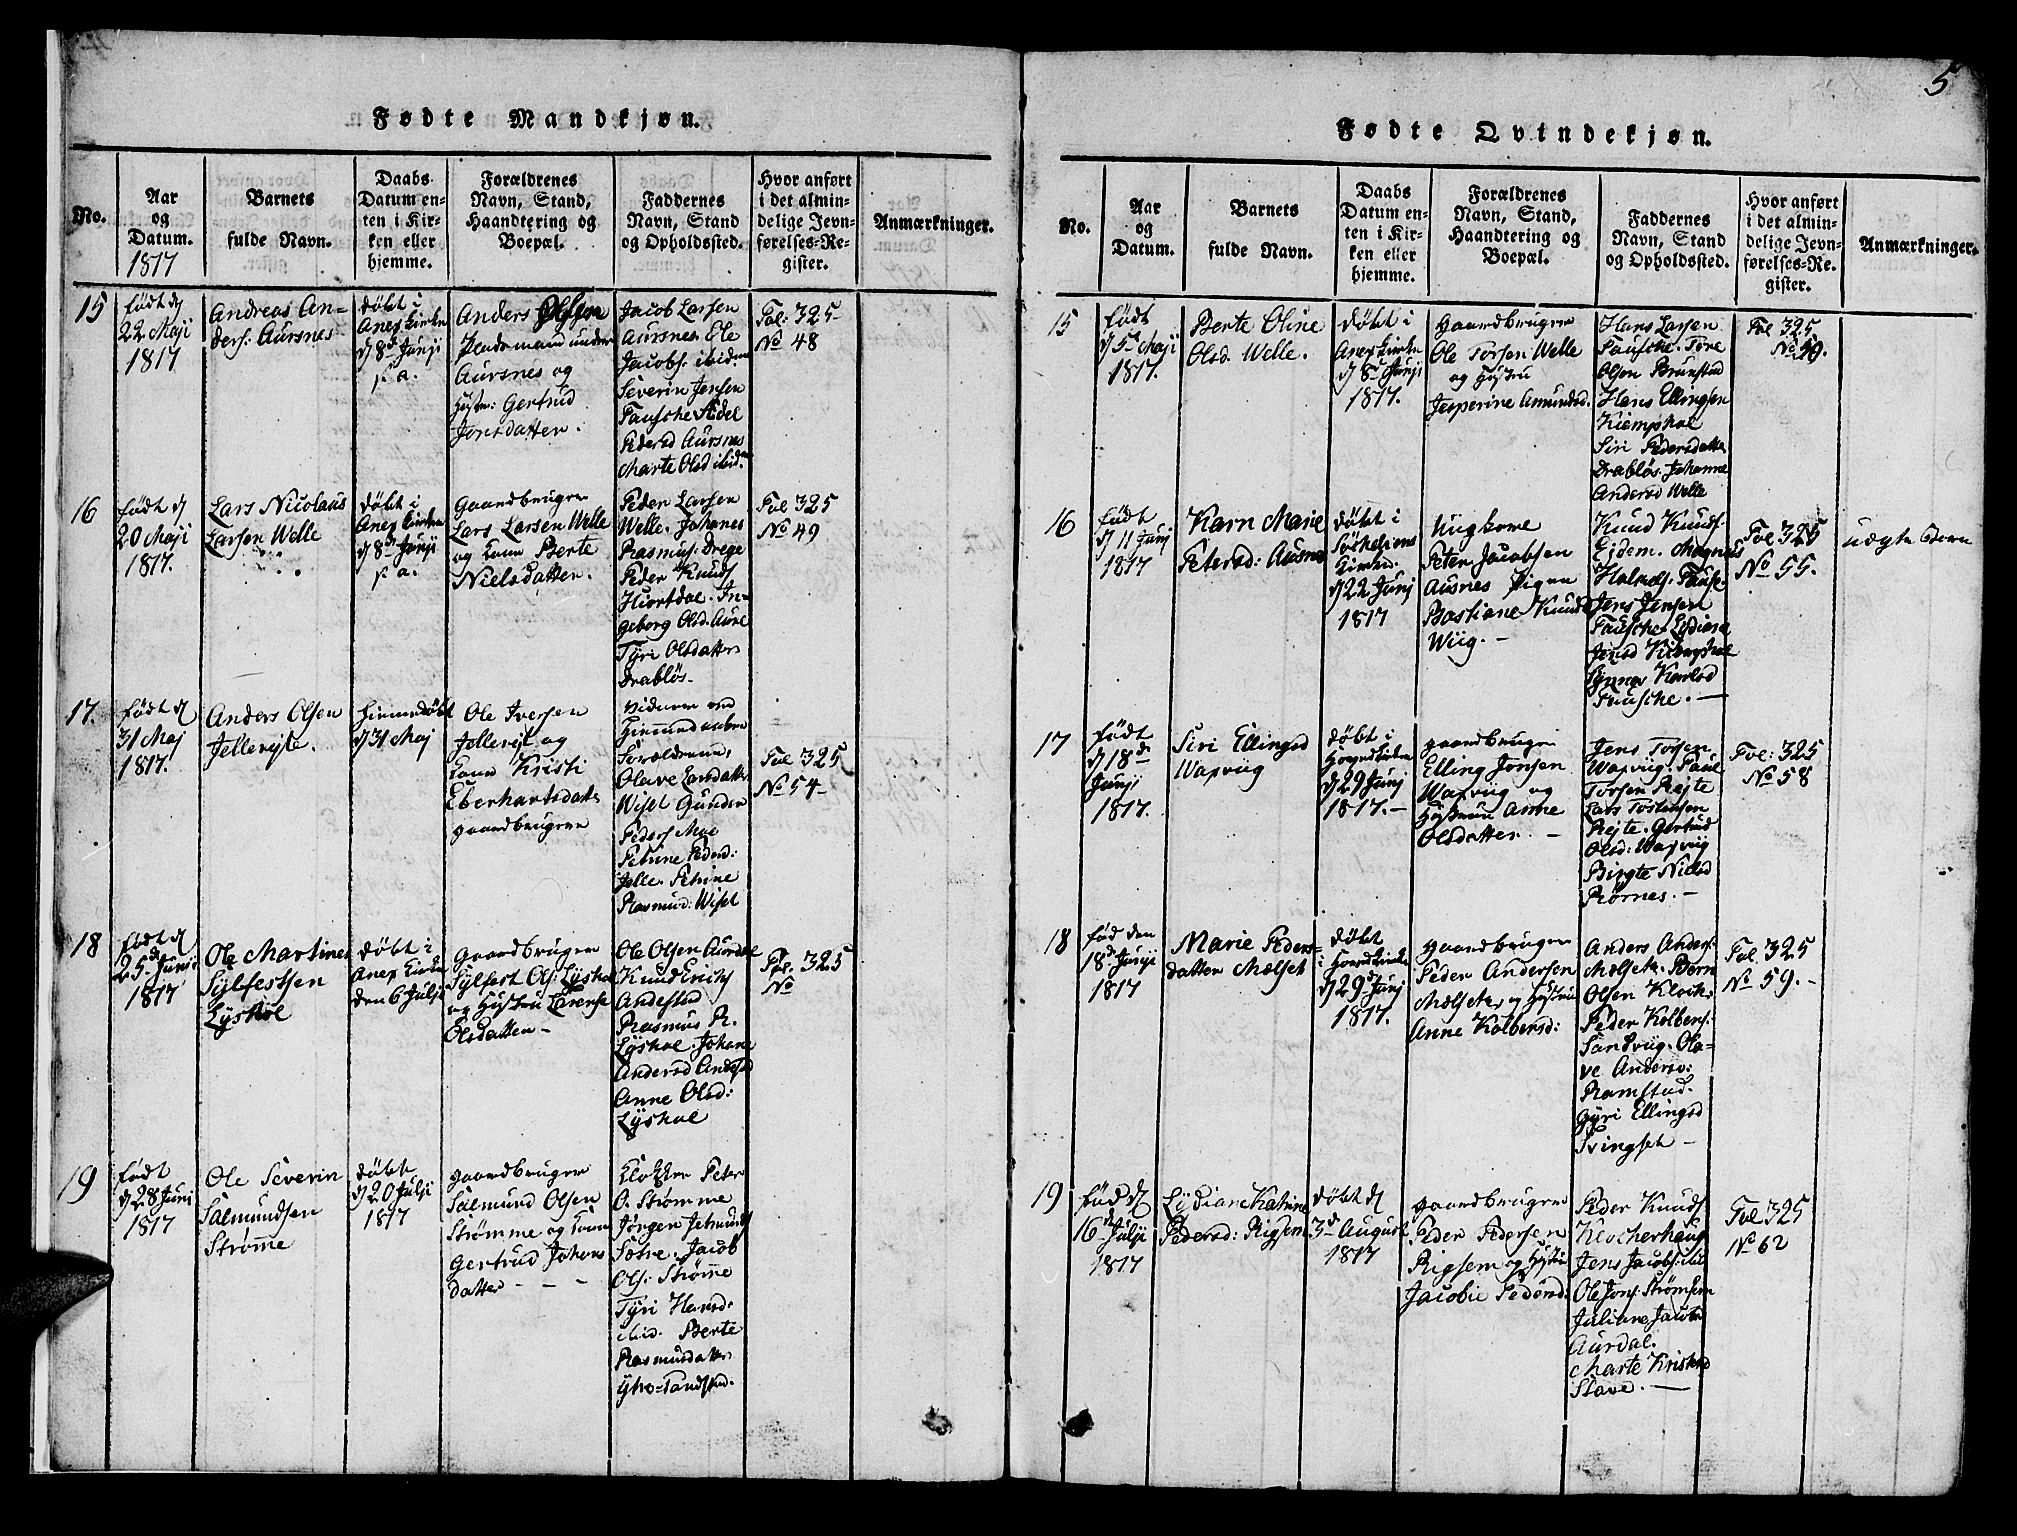 5
Fødte Mandkjøn.
No.
Aar
og
Datum.
1817
Barnets
fulde Navn.
Daabs
Datum en-
ten i Kir-
ken eller
hjemme.
Forældrenes
Navn, Stand,
Haandtering og
Boepæl.
Faddernes
Navn, Stand
og Opholdssted.
Hvor anført
i det almin-
delige Jevn-
førelses-Re-
gister.
Anmærkninger.
15
født d
22 Maji
1817
Andreas An-
ders: Aursnes
døbt i
Anex Kirken
d 8d Junji
s. a.
Anders Olsen
under
Aursnes og
Hustr: Gertrud
Jonsdatter.
Jacob Larsen
Aursnes. Ole
Jacobs. ibidem
Severin Jensen
Fausche Sidel
Pedersd Aursnes
Marte Olsd ibidm
Fol: 325
No 48
16
født d
20 Maji
1817.
Lars Nicolaus
Larsen Welle
døbt i
Anex Kirken
d 8d Junji
s. a.
Gaardbruger
Lars Larsen Welle
og Kone Berte
Nielsdatter.
Peder Larsen
Welle. Johanes
Rasmus: Drege
Peder Knuds
Hiortdal. In-
geborg Olsd. Aure
Tÿri Olsdatter
Drabløs.
Fol 325
No 49
17.
født d
31 Maj
1817.
Anders Olsen
Jellevigte.
Hiemmedøbt
d 31 Maj
Ole Iversen
og
Kone Kristi
Eberhartsdatter
gaardbruger
Vidner ved
Hiemmedaaben
Forældrene,
Olave Larsdatter
Wiset Gunder
Peders Moe
Petrine Peders:
Jelle. Petrine
Rasmusd: Wiset
Fol 325
No 54
18
født d
25d Junji
1817
Ole Martines
Sÿlfestsen
Lÿshol
døbt i
Anex Kirken
den 6 Julji
gaardbruger
Sÿlfest Ols: Lÿshol
og Hustru Lovense
Olsdatter
Ole Olsen Aurdal
Knud Erichs
Andestad
Rasmus R.
Lÿshol. Johane
Andersd Andestad
Anne Olsd:
Lÿshol
Fol. 325
No
19
født
d 28 Junj
1817
Ole Severin
Salmundsen
Strømme
døbt
d 20 Julji
1817
gaardbruger
Salmund Olsen
Strømme og Kone
Gertrud Johans
datter
Klokker Peter
O. Strømme
Jørgen Jetmunds
Sætre. Jacob
Ols: Strømme
Tÿri Hansd.
ibid. Berte
Rasmusdatter
Fødte Qvindekjøn.
No.
Aar
og
Datum.
Barnets
fulde Navn.
Daabs
Datum en-
ten i Kir-
ken eller
hjemme.
Forældrenes
Navn, Stand,
Haandtering og
Boepæl.
Faddernes
Navn, Stand
og Opholdssted.
Hvor anført
i det almin-
delige Jevn-
førelses-Re-
gister.
Anmærkninger.
15
født
d 5d Maji
1817.
Berte Oline
Olsd. Welle.
døbt i
Anex Kirken
d 8d Junji
1817.
Gaardbruger
Ole Torsen Welle
og Hustru
Jesperine Amundsd.
Hans Larsen
Fausche. Tore
Olsen Brunstad
Hans Ellingsen
Kiemphol
Siri Pedersdatter
Drabløs. Johanne
Andersd Welle
Fol 325
No 50.
16
født
d 11 Junj
1817
Karn Marie
Petersd: Ausnes
døbt i
Kirke.
d 22 Junj
1817
Ungkone
Peter Jacobsen
Ausnes Pigen
Bastiane Knuds
Wiig.
Knud Knuds.
Eidem. Magnus
Jens Jensen
Fausche. Lydiane
Jensd Kiempshol
Synner Karlsd
Fausche.
Fol 325
No 55.
uægte
17
født
d 18de
Junji
1817.
Siri Ellingsd
Wapviig
døbt i
d 29 Junj
1817.
gaardbruger
Elling Jonsen
Wapviig og
Hustrue Anne
Olsdatter.
Jens Torsen
Wapviig. Paul
Torsen Rejte
Lars Torstensen
Rejte. Gertrud
Olsd: Wapviig
Birgte Nielsd
Rørnes.
Fol: 325
No 58
18
fød den
18d Junji
1817
Marie Peders-
datter Mælset
døbt i
d 29d Junj
1817.
gaardbruger
Peder Andersen
Mælseter og Hustru
Anne Kolbensd:
Anders Anders:
Mælseter. Bern
Olsen Kloch.
Peder Kolbens.
Sandviig. Ola-
ve Andersd:
Ramstad.
Gÿri Ellingsd
Tvingset
Fol 325
No 59.
19
fød d
16d Julji
1817
Lÿdiane Katrine
Pedersd: Rigsem
døbt d
3d August
1817
gaardbruger
Peder Pedersen
Rigsem og Hustru
Jacobie Pedersd.
Peder Knuds
Klocherhaug
Jens Jacobs:
Ole Jons: Strømsem
Juliane Jacobs
Aurdal.
Marte Kristensd
Stave.
Fol 325
No 62